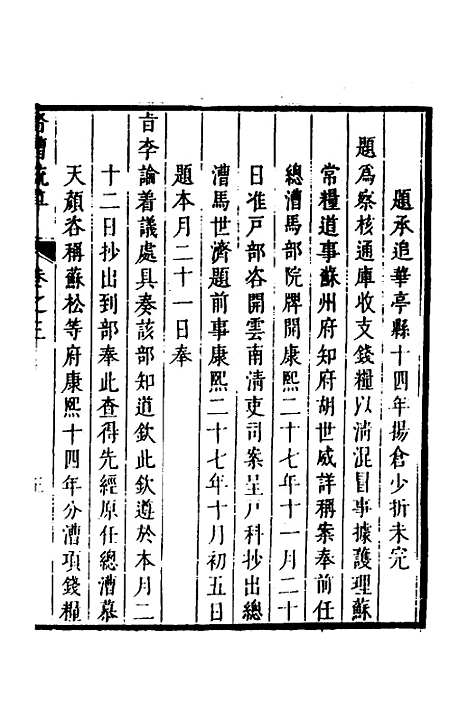 題承追華亭縣十四年揚倉少折未完
題爲察核通庫收支錢糧以清混冒事據護理蘇
常糧道事蘇州府知府胡世威詳稱案奉前任
總漕馬部院牌開康熙二十七年十一月二十
日准戸部咨開雲南清吏司案呈戸科抄出總
漕馬世濟題前事康熙二十七年十月初五日
題本月二十一日奉
旨李論着議處具奏該部知道欽此欽遵於本月二
十二日抄出到部奉此查得先經原任總漕慕
天顔咨稱蘇松等府康熙十四年分漕項錢糧
卷之三